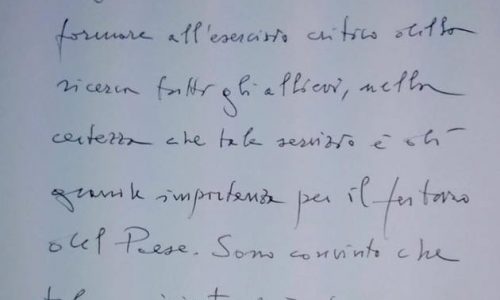 formare all'esercizio critico della
ricerca tutti gli allievi, nella
certezza che tale servizio è di
grande importanza per il futuro
del Paese. Sono convinto che